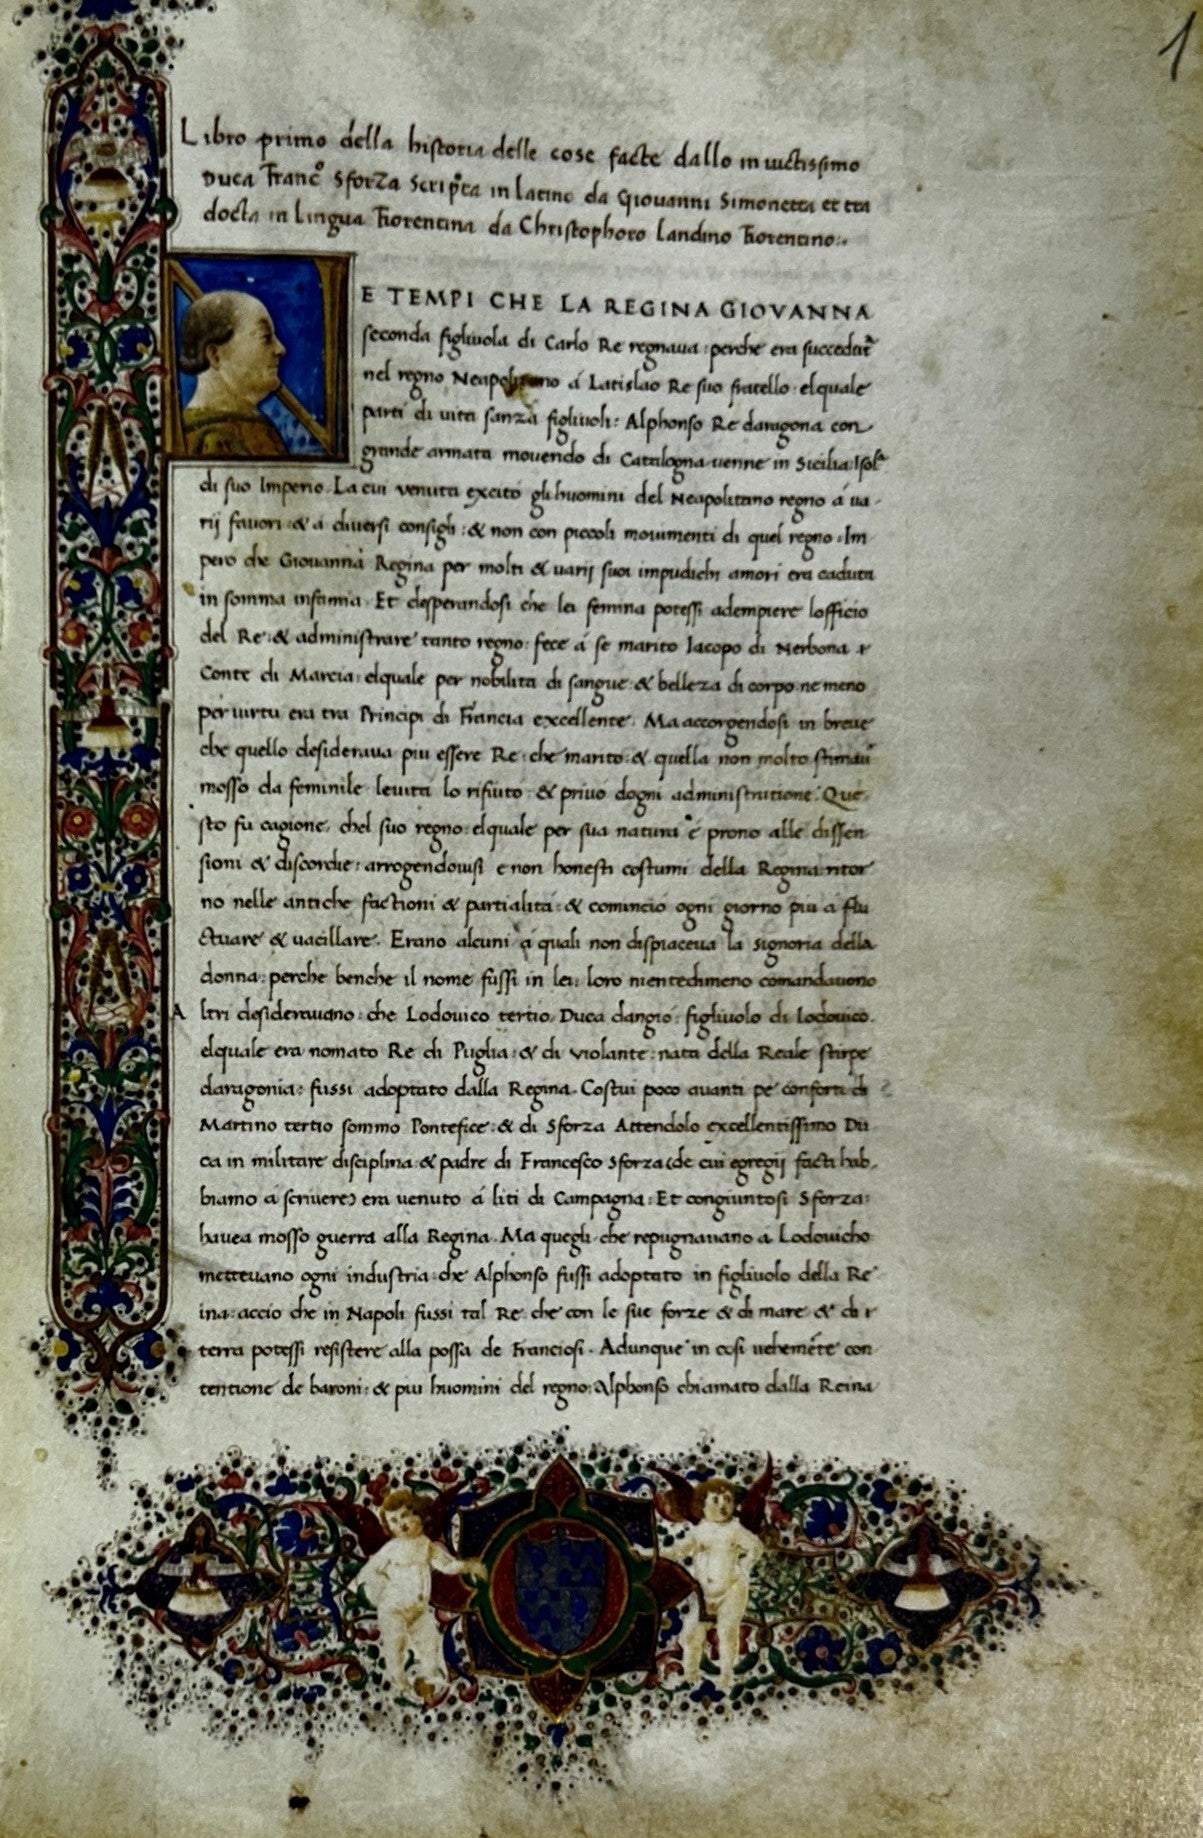 1
Libro primo della historia delle cose facte dallo inuictissimo
Duca Franc.º Sforza Scripta in latino da Giouanni Simonetta et tra
docta in Lingua Fiorentina da Christophoro Landino Fiorentino:.
NE TEMPI CHE LA REGINA GIOVANNA
seconda figliuola di Carlo Re regnaua: perche era succeduta
nel regno Neapolitano á Latislao Re suo fratello: elquale
parti di uita sanza figliuoli: Alphonso Re daragona con
grande armata mouendo di Catalogna uenne in Sicilia Isola
di suo Imperio. La cui uenuta excitó gli huomini del Neapolitano regno á ua-
rij fauori: & a diuersi consigli: & non con piccoli mouimenti di quel regno. Im
pero che Giouanna Regina per molti & uarij suoi impudichi amori era caduta
in somma infamia. Et desperandosi che lei femina potessi adempiere lofficio
del Re: & administrare tanto regno: fece á se marito Iacopo di Nerbona
Conte di Marcia: elquale per nobilita di sangue: & belleza di corpo ne meno
per uirtu era tra Principi di Francia excellente. Ma accorgendosi in breue
che quello desideraua piu essere Re: che marito: & quella non molto stimaua
mosso da feminile leuita lo rifiutó: & priuó dogni administratione. Que
sto fu cagione, chel suo regno: elquale per sua natura é prono alle dissen
sioni & discordie: arrogendouisi e non honesti costumi della Regina: ritor
nó nelle antiche factioni & partialitá: & cominció ogni giorno piu a flu
ctuare & uacillare. Erano alcuni á quali non dispiaceua la signoria della
donna: perche benche il nome fussi in lei: loro nientedimeno comandauono
Altri desiderauano: che Lodouico tertio. Duca dangió: figliuolo di Lodouico.
elquale era nomato Re di Puglia: & di uiolante: nata della Reale stirpe
daragonia: fussi adoptato dalla Regina. Costui poco auanti pe conforti di
Martino tertio sommo Pontefice: & di Sforza Attendolo excellentissimo Du
ca in militare disciplina: & padre di Francesco Sforza (de cui egregij facti hab-
biamo á scriuere) era uenuto á liti di Campagna: Et congiuntosi Sforza:
hauea mosso guerra alla Regina. Ma quegli che repugnauano a Lodouicho
metteuano ogni industria: che Alphonso fussi adoptato in figliuolo della Re
ina: accio che in Napoli fussi tal Re: che con le sue forze & di mare & di
terra potessi resistere alla possa de Franciosi. Adunque in cosi uehemēte con
tentione de baroni: & piu huomini del regno: Alphonso chiamato dalla Reina